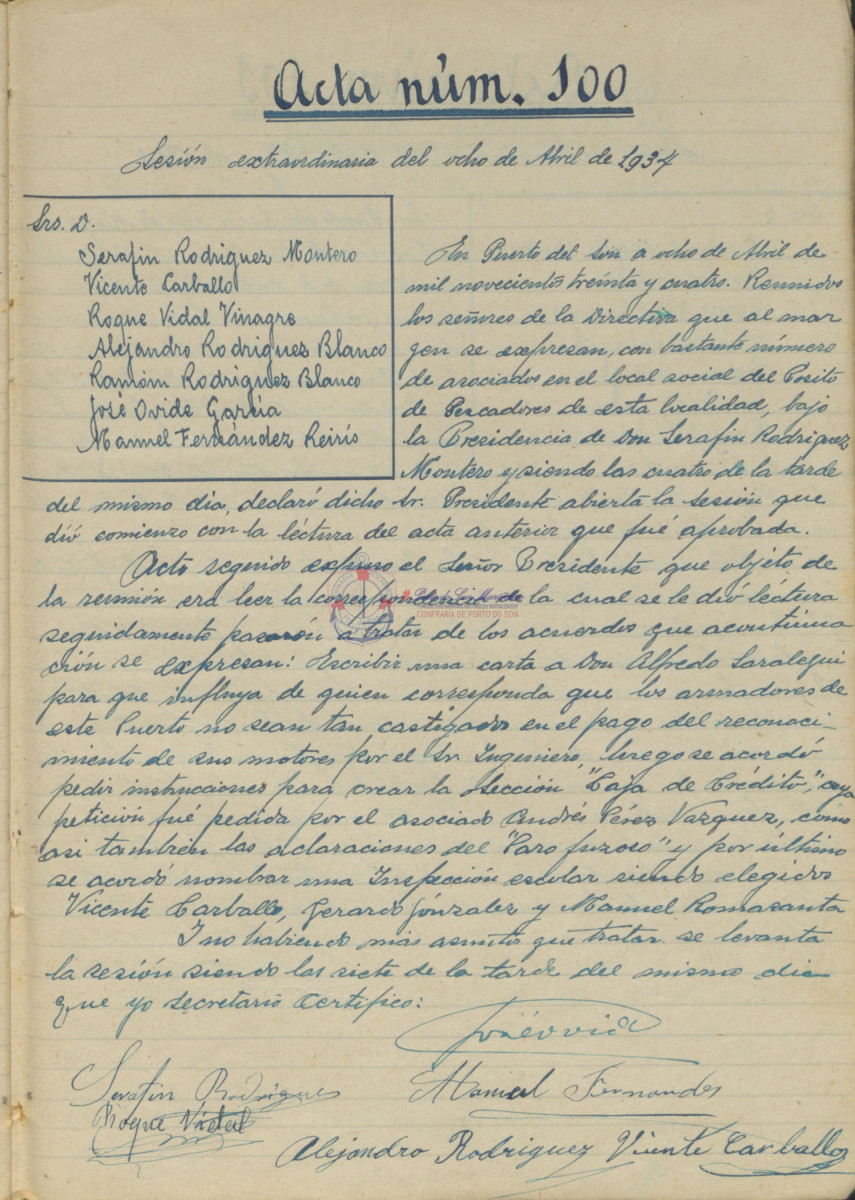 Acta núm. 100
Sesión extraordinaria del ocho de Abril de 1934
Srs. D.
Serafin Rodriguez Montero
Vicente Carballo
Roque Vidal Vinagre
Alejandro Rodriguez Blanco
Ramóm Rodriguez Blanco
José Ovide García
Manuel Fernández Reirís
En Puerto del Son a ocho de Abril de
mil novecientos treinta y cuatro. Reunidos
los señores de la Directiva que al mar
gen se expresan, con bastante número
de asociados en el local social del Posito
de Pescadores de esta localidad, bajo
la Presidencia de Don Serafin Rodriguez
Montero y siendo las cuatro de la tarde
del mismo dia, declaró dicho Sr. Presidente abierta la sesión que
dió comienzo con la léctura del acta anterior que fué aprobada.
Acto seguido expuso el Señor Presidente que objeto de
la reunión era leer la correspondencia de la cual se le dió léctura
seguidamente pasarón a tratar de los acuerdos que acontinua
ción se expresan: Escribir una carta a Don Alfredo Saralegui
para que influya de quien corresponda que los armadores de
este Puerto no sean tan castigados en el pago del reconoci-
miento de sus motores por el Sr. Ingeniero, luego se acordó
pedir instrucciones para crear la Sección "Caja de Crédito", cuya
petición fué pedida por el asociado Andrés Pérez Vazquez, como
asi tambien las aclaraciones del "Paro fuzoso" y por último
se acordó nombrar una Inspección escolar siendo elegidos
Vicente Carballo, Gerardo Gónzalez y Manuel Romasanta
I no habiendo mas asuntos que tratar se levanta
la sesión siendo las siete de la tarde del mismo dia
que yo secretario certifico:
José Ovide
Serafin Rodrigues
Manuel Fernandes
Roque Vidal
Alejandro Rodriguez
Vicente Carballo
CONFRARÍA DE PORTO DO SON